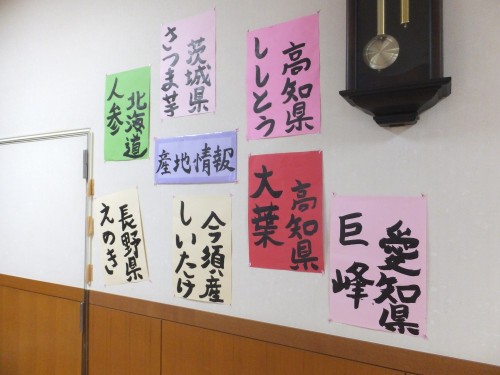 茨城県
さつま芋
高知県
ししとう
北海道
人参
産地情報
高知県
大葉
長野県
えのき
今須産
しいたけ
愛知県
巨峰